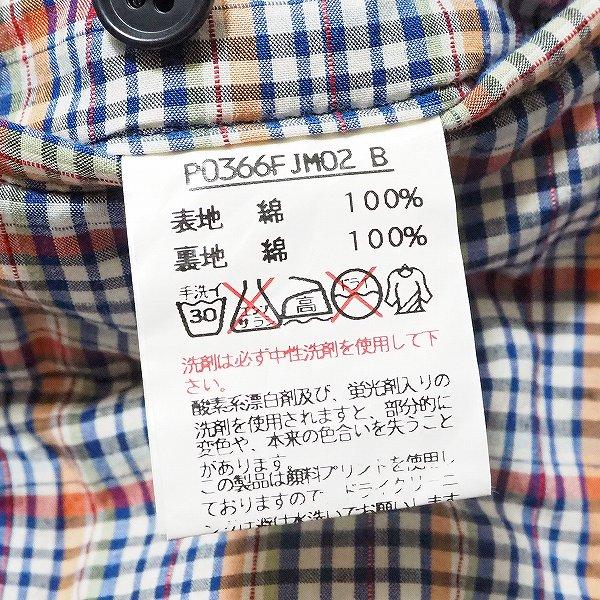 P0366FJM02 B
表地 綿 100%
裏地 綿 100%
手洗イ
30 エンソ サラシ 高 ドライ
洗剤は必ず中性洗剤を使用して下
さい。
酸素系漂白剤及び、蛍光剤入りの
洗剤を使用されますと、部分的に
変色や、本来の色合いを失うこと
があります
この製品は顔料プリントを使用し
ておりますので ドライクリーニ
ングは避け水洗いでお願いします